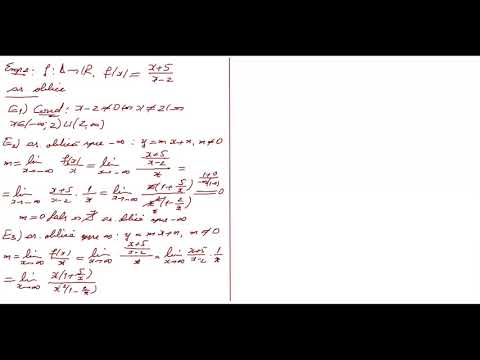 Exp2: f: Δ→ℝ, f(x) = \frac{x+5}{x-2}
as oblice
E1) Cond: x-2≠0 ⇔ x≠2 ⇔
x∈(-∞;2)∪(2,∞)
E2) as. oblică spre -∞ : y=mx+n, m≠0
m = \lim_{x→-∞} \frac{f(x)}{x} = \lim_{x→-∞} \frac{\frac{x+5}{x-2}}{x} =
= \lim_{x→-∞} \frac{x+5}{x-2} · \frac{1}{x} = \lim_{x→-∞} \frac{x(1+\frac{5}{x})}{x^2(1-\frac{2}{x})} = 0
m=0 fals ⇒ ∄ as. oblică spre -∞
E3) as. oblică spre ∞ : y=mx+n, m≠0
m = \lim_{x→∞} \frac{f(x)}{x} = \lim_{x→∞} \frac{\frac{x+5}{x-2}}{x} = \lim_{x→∞} \frac{x+5}{x-2} · \frac{1}{x}
= \lim_{x→∞} \frac{x(1+\frac{5}{x})}{x^2(1-\frac{2}{x})}